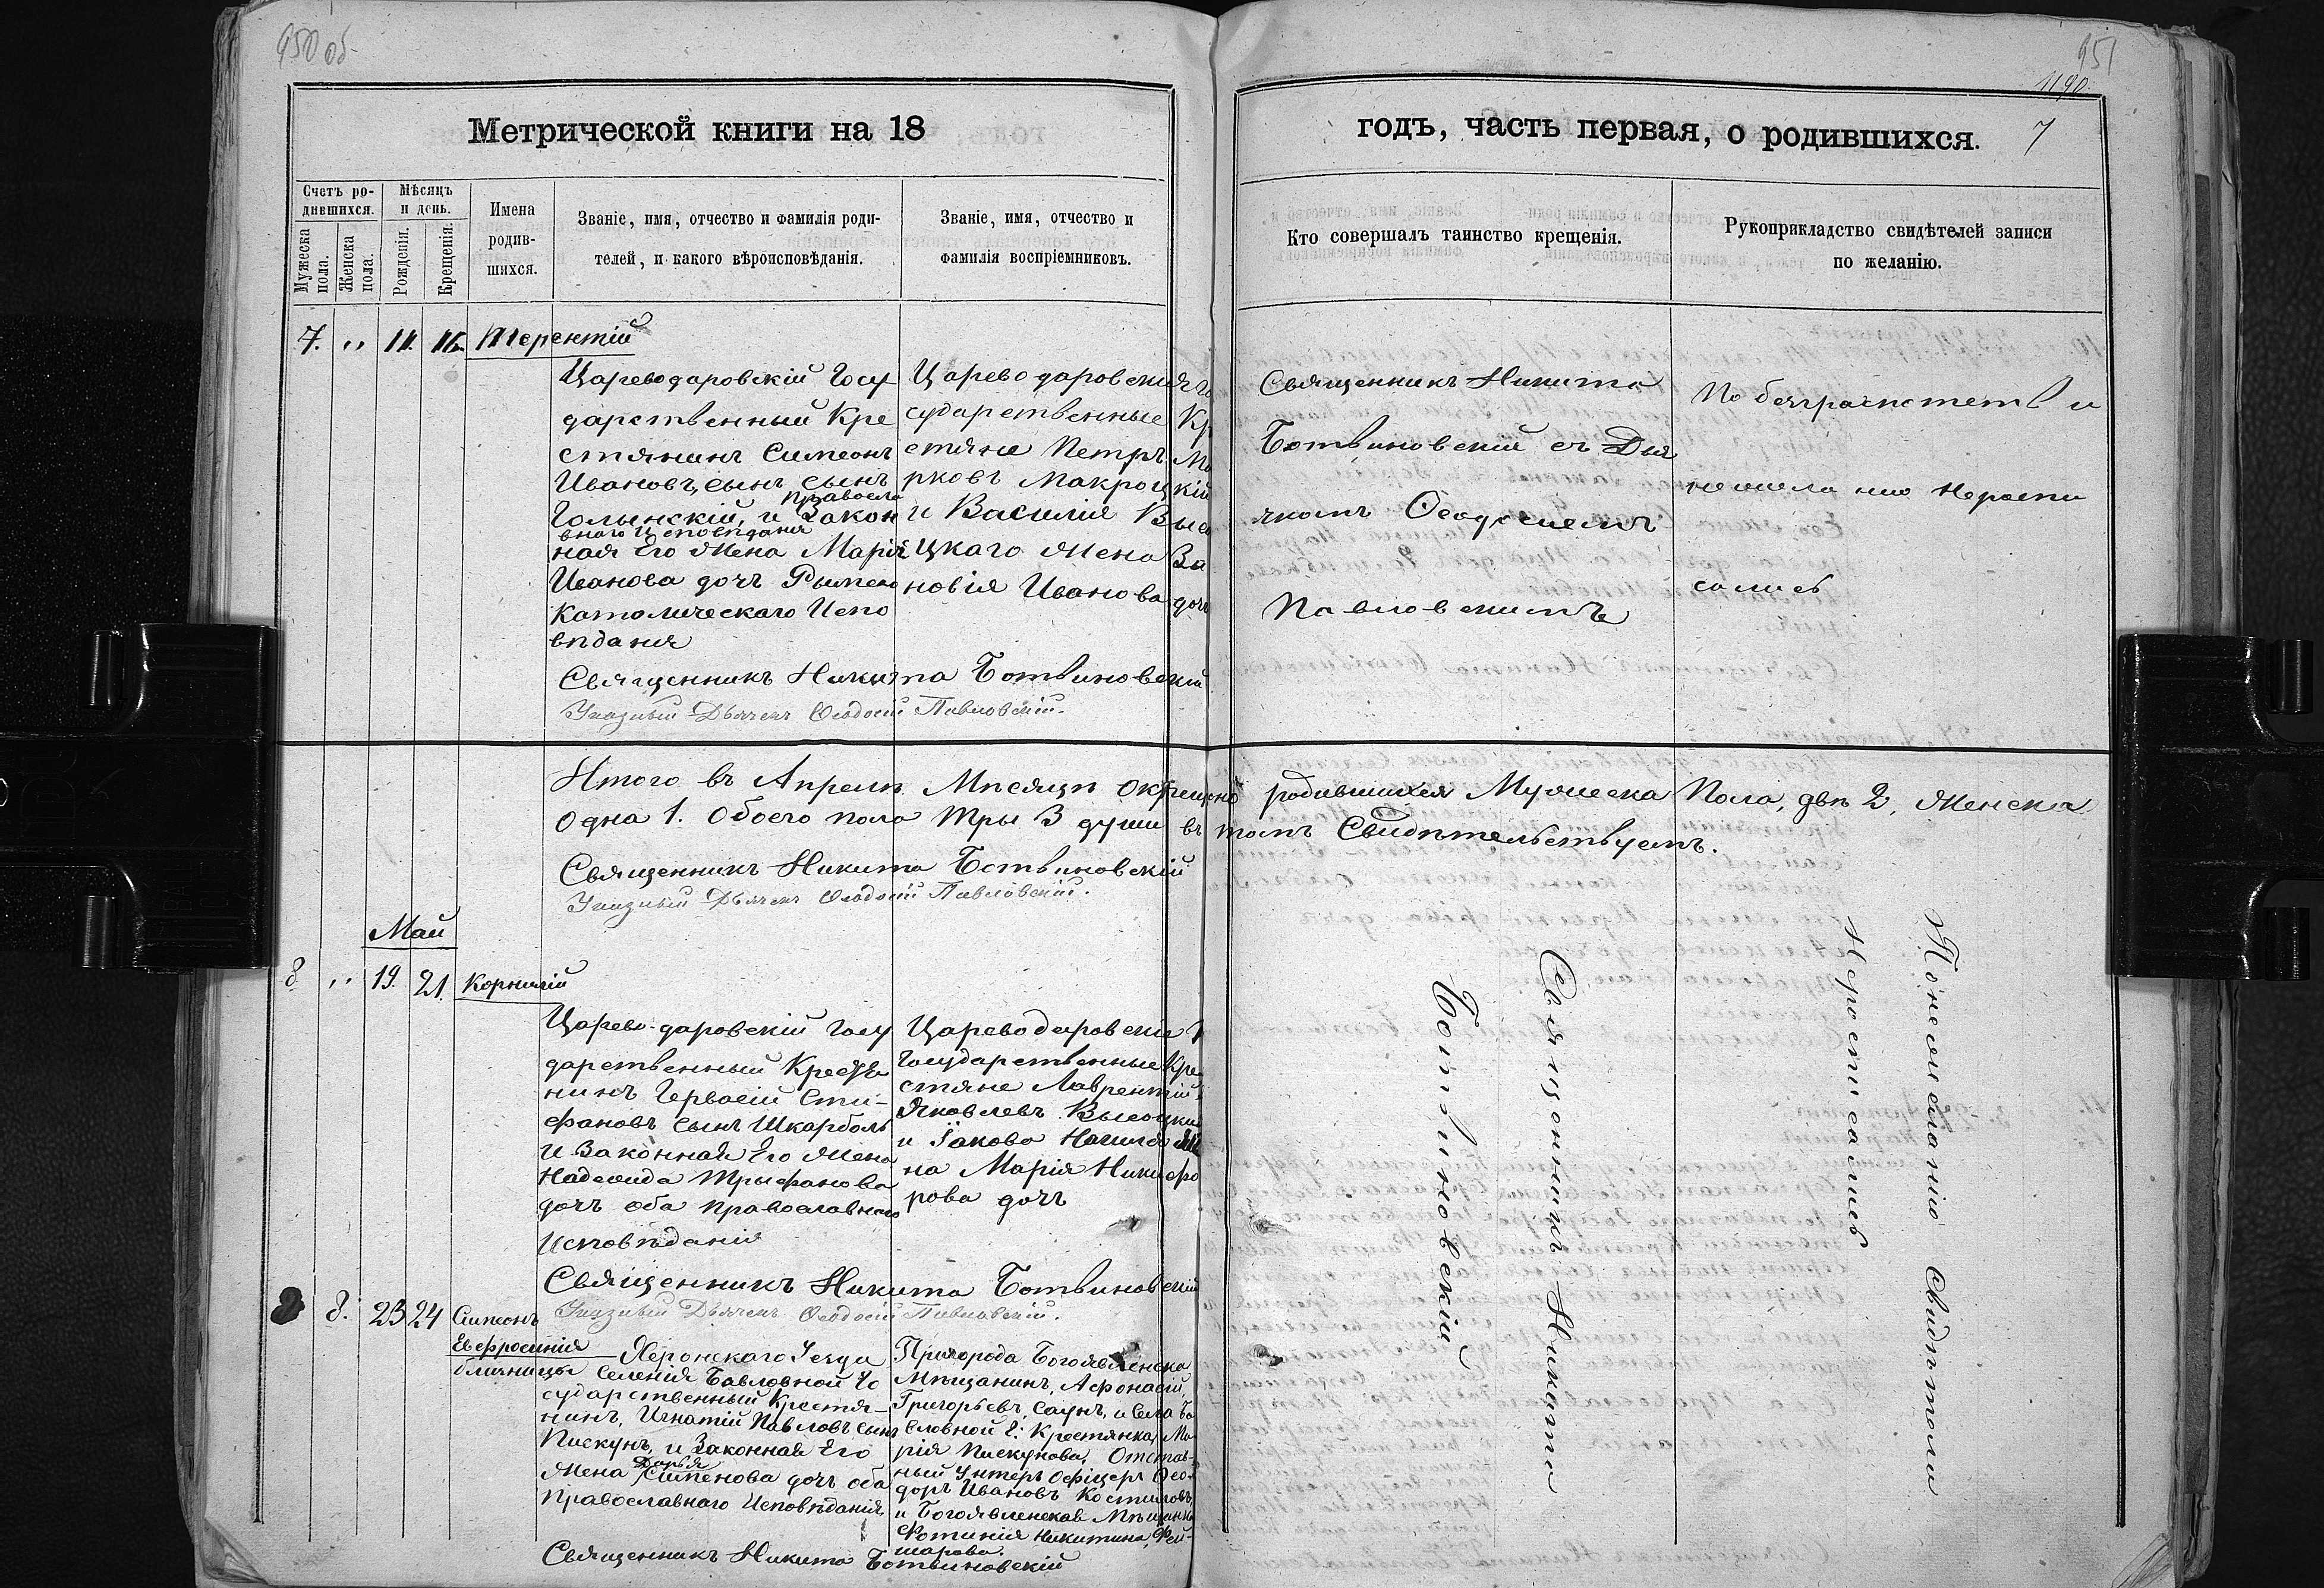 950 об
951
1190
Метрической книги на 18
годъ, часть первая, о родившихся.
7
Счетъ ро-
дившихся.
Мѣсяцъ
и день.
Мужеска
пола.
Женска
пола.
Рожденія.
Крещенія.
Имена
родив-
шихся.
Званіе, имя, отчество и фамилія роди-
телей, и какого вѣроисповѣданія.
Званіе, имя, отчество и
фамилія воспріемниковъ.
Кто совершалъ таинство крещенія.
Рукоприкладство свидѣтелей записи
по желанію.
7. " 11. 16. Терентій
Цареводаровскій Госу
дарственный Кре
стянинъ Симеонъ
Ивановъ, сынъ сынъ
Голынскій, и Закон
правосла
вного Исповѣданія
ная Его Жена Марія
Иванова дочъ Римско
Католическаго Испо
вѣданія
Цареводаровския Го
сударственные Кр
естяне Петръ Ма
рковъ Макроцкій
и Василия Высо
цкаго Жена За
новія Иванова дочъ
Священникъ Никита
Ботвиновскій съ Дья
комъ Ѳеодосиемъ
Павловскимъ
По безграмотств и
нежела нию Нероспи
сались
Священникъ Никита Ботвиновскій
Указный Дьячекъ Ѳеодосій Павловскій.
Итого въ Апрелѣ Мѣсяцѣ Окрещено родившихся Мужеска Пола, двѣ 2, Женска
Одна 1. Обоего пола Тры 3 души въ томъ Свидѣтельствуемъ.
Священникъ Никита Ботвиновскій
Указный Дьячекъ Ѳеодосій Павловскій.
Май
8 " 19. 21. Корнилій
Царево-даровскій Госу
дарственный Крестя
нинъ Гервасій Сти-
фановъ сынъ Шкарболь
и Законная Его Жена
Надежда Трыфанова
дочъ оба православного
Исповѣданія
Цареводаровскіе
Государственные Кре
стяне Лаврентій
Яковлевъ Высоцкий
и Іакова
на Марія Никифо
рова дочъ
Священникъ Никита
Ботвиновскій
Понежеланію Свидѣтели
Неростисались
Священникъ Никита Ботвиновскій
Указный Дьячекъ Ѳеодосій Павловскій.
8. 23 24 Симеонъ
Евфросинія
близницы
Херсонскаго Уезда
Селенія Бавловной Го
сударственный Крестя-
нинъ, Игнатій Павловъ Сынъ
Пискунъ, и Законная Его
Дарья
Жена Симѣнова дочъ оба
Православнаго Исповѣданія
Пригорода Богоявленска
Мѣщанинъ, Афонасій,
Григорьевъ, Саунъ, и Села Ба
вловной Г: Крестянка, Ма
рія Пискунова, Отстав-
ный Унтеръ Офіцеръ Ѳео-
доръ Ивановъ Костиговъ,
и Богоявленская Мѣщанка
Фотинія Никитина, Фей-
шарова.
Священникъ Никита Ботвиновскій